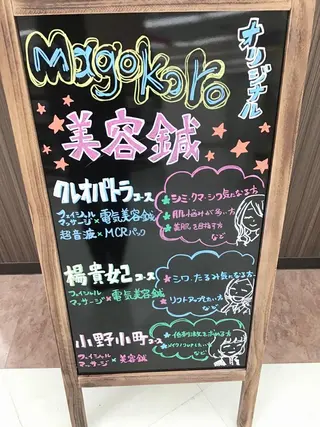 Magokoro
オリジナル
美容鍼
クレオパトラコース
フェイシャル
マッサージ×電気美容鍼
超音波×MCRパック
★シミ・クマ・シワ気になる方
★肌悩みが多い方
★美肌を目指す方
など
楊貴妃コース
フェイシャル
マッサージ×電気美容鍼
★シワ、たるみ気になる方
リフトアップしたい方
など
小野小町コース
フェイシャル
マッサージ×美容鍼
など